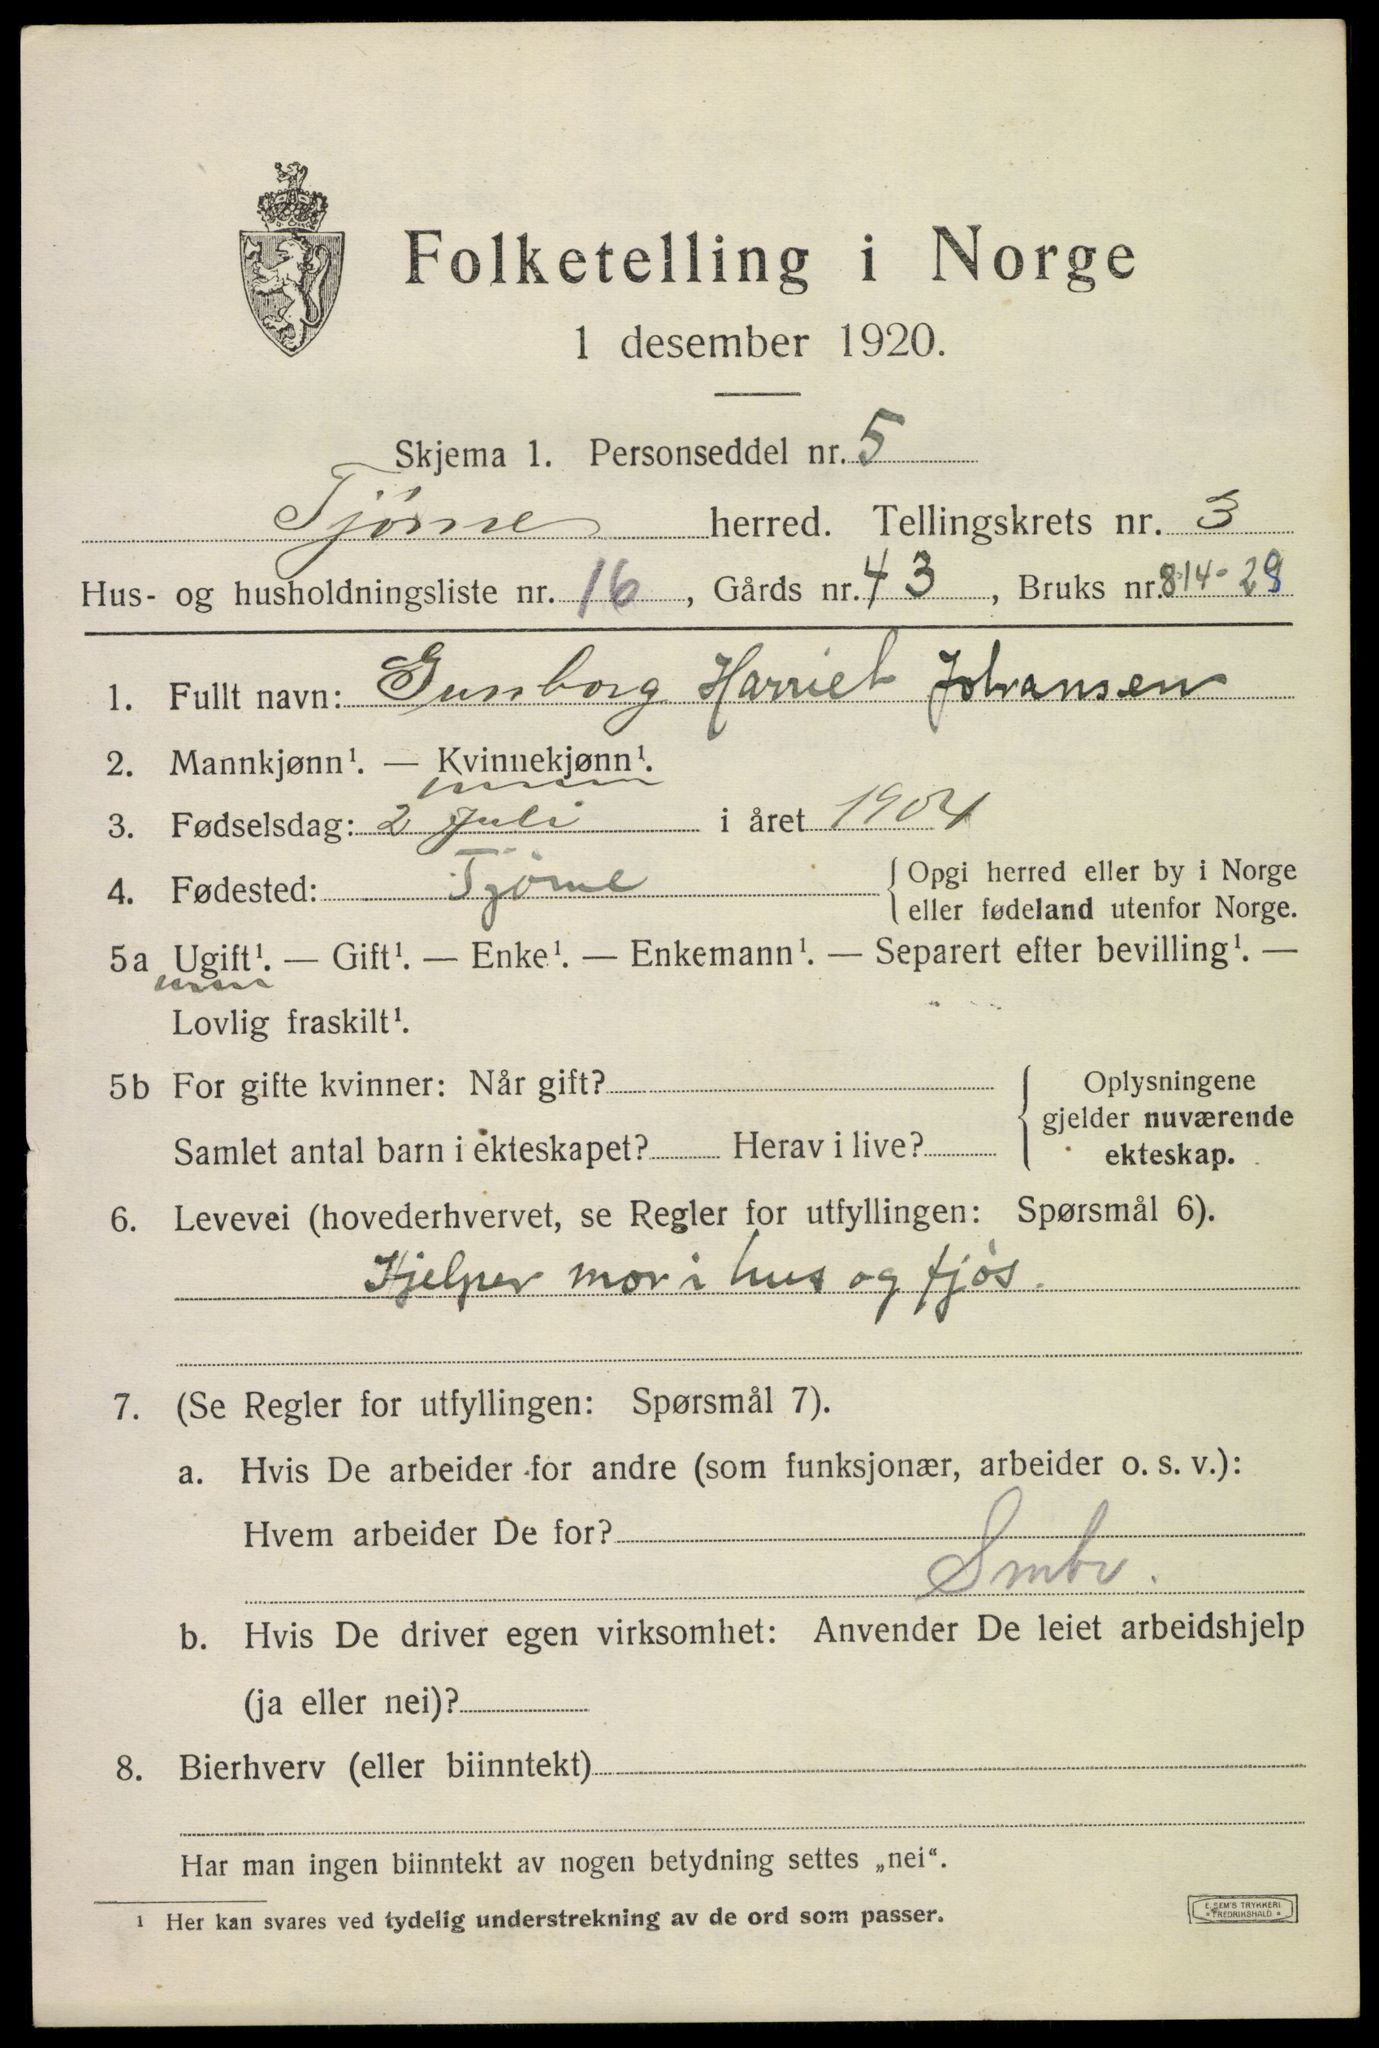 Folketelling i Norge
1 desember 1920.
Skjema 1. Personseddel nr. 5
Tjøme herred. Tellingskrets nr. 3
Hus- og husholdningsliste nr. 16, Gårds nr. 43, Bruks nr. 8-14-29
1. Fullt navn: Gunborg Harriet Johansen
2. Mannkjønn¹. — Kvinnekjønn¹.
3. Fødselsdag: 2 Juli i året 1904
4. Fødested: Tjøme { Opgi herred eller by i Norge
eller fødeland utenfor Norge.
5a Ugift¹. — Gift¹. — Enke¹. — Enkemann¹. — Separert efter bevilling¹. —
Lovlig fraskilt¹.
5b For gifte kvinner: Når gift? { Oplysningene
gjelder nuværende
Samlet antal barn i ekteskapet? Herav i live? ekteskap.
6. Levevei (hovederhvervet, se Regler for utfyllingen: Spørsmål 6).
Hjelper mor i hus og fjøs.
7. (Se Regler for utfyllingen: Spørsmål 7).
a. Hvis De arbeider for andre (som funksjonær, arbeider o. s. v.):
Hvem arbeider De for?
Smbr.
b. Hvis De driver egen virksomhet: Anvender De leiet arbeidshjelp
(ja eller nei)?
8. Bierhverv (eller biinntekt)
Har man ingen biinntekt av nogen betydning settes „nei“.
¹ Her kan svares ved tydelig understrekning av de ord som passer.
E. SEM'S TRYKKERI
* FREDRIKSHALD *